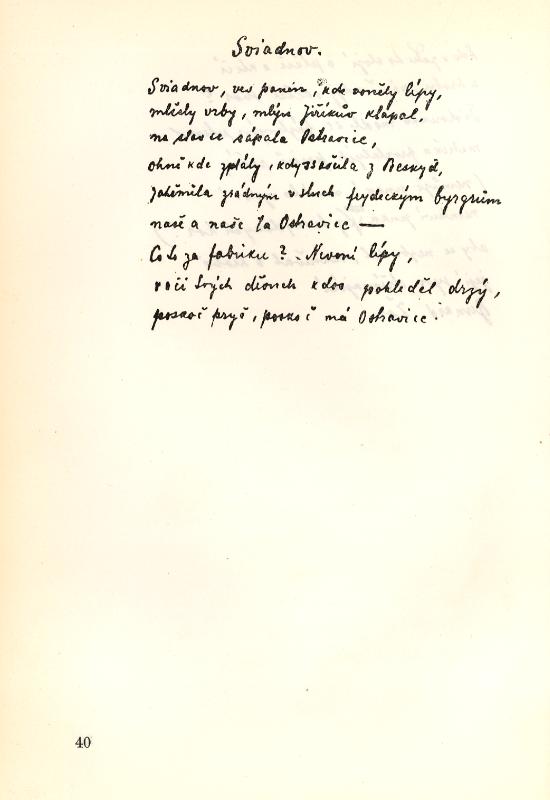 Sviadnov.
Sviadnov, ves panen, kde voněly lípy,
mlčely vrby, mlýn Jiříkův klapal,
na slavíce sápala Ostravice,
ohně kde zplály, když skočila z Beskyd,
zahřměla zrádným v sluch frydeckým byrgrům
naše a naše ta Ostravice —
Co to za fabriku? Nevoní lípy,
v očí tvých děvuch kdos pohleděl drzý,
poskoč pryč, poskoč má Ostravice.
40